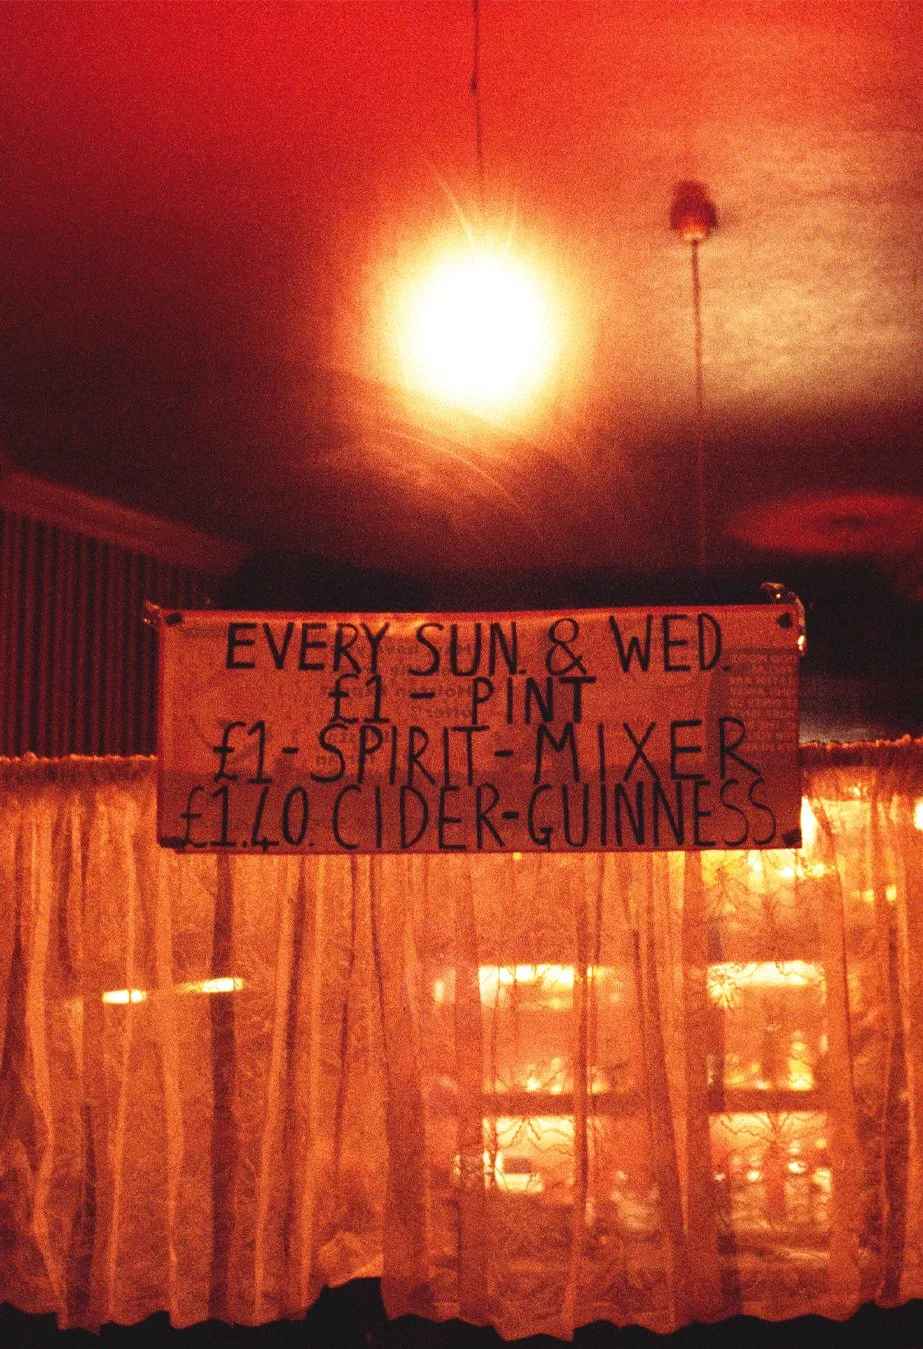 EVERY SUN. & WED.
£1 - PINT
£1-SPIRIT-MIXER
£1.40. CIDER-GUINNESS.